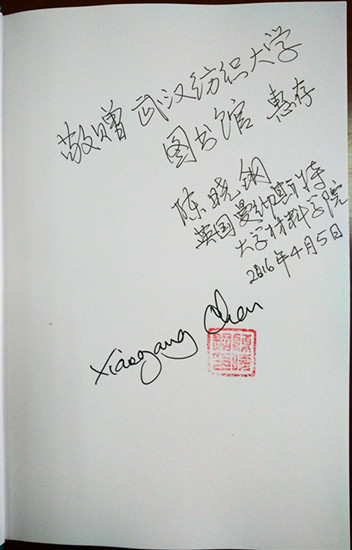 敬赠 武汉纺织大学
图书馆 惠存
陈晓钢
英国曼彻斯特
大学材料学院
2016年4月5日
Xiaogang Chen